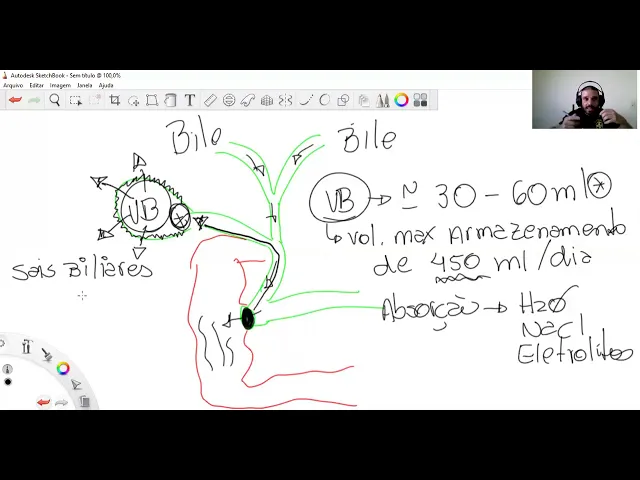 Autodesk SketchBook - Sem título @ 100,0%
Arquivo Editar Imagem Janela Ajuda
T
Bile
Bile
VB
Sais Biliares
VB → ≃ 30 - 60 ml *
↳ vol. max Armazenamendo
de 450 ml/dia
Absorção → H2O
NaCl
Eletrolitos